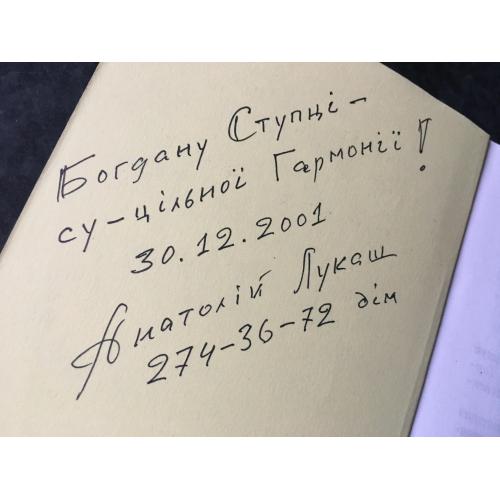 Богдану Ступці –
су-цільної Гармонії!
30.12.2001
Анатолій Лукаш
274-36-72 дім